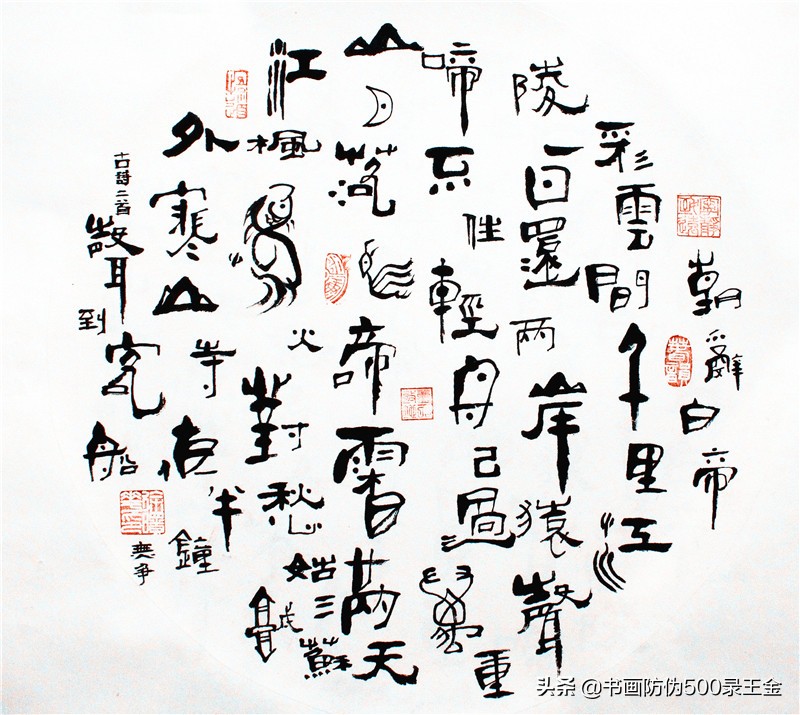 朝辭白帝
彩雲間千里江
陵一日還兩岸猿聲
啼不住輕舟已過萬重
山月落烏啼霜滿天
江楓漁火對愁眠姑蘇
外寒山寺夜半鐘
聲到客船
古詩二首
無爭
头条 @书画防伪500录王金